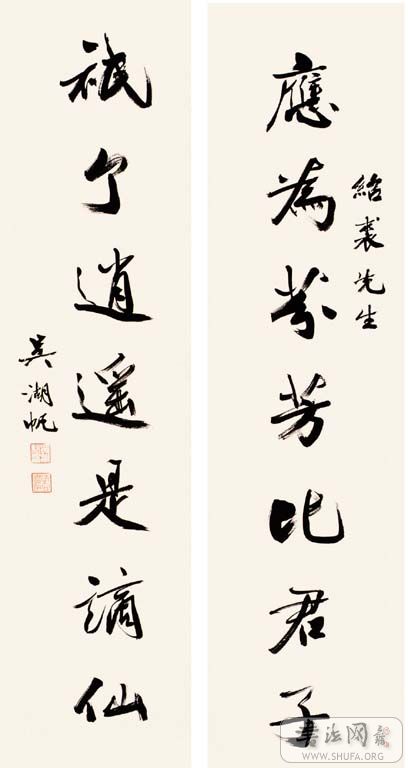 紹裘先生
應為芬芳比君子
祇个逍遥是謫仙
吳湖帆
書法网
WWW.SHUFA.ORG